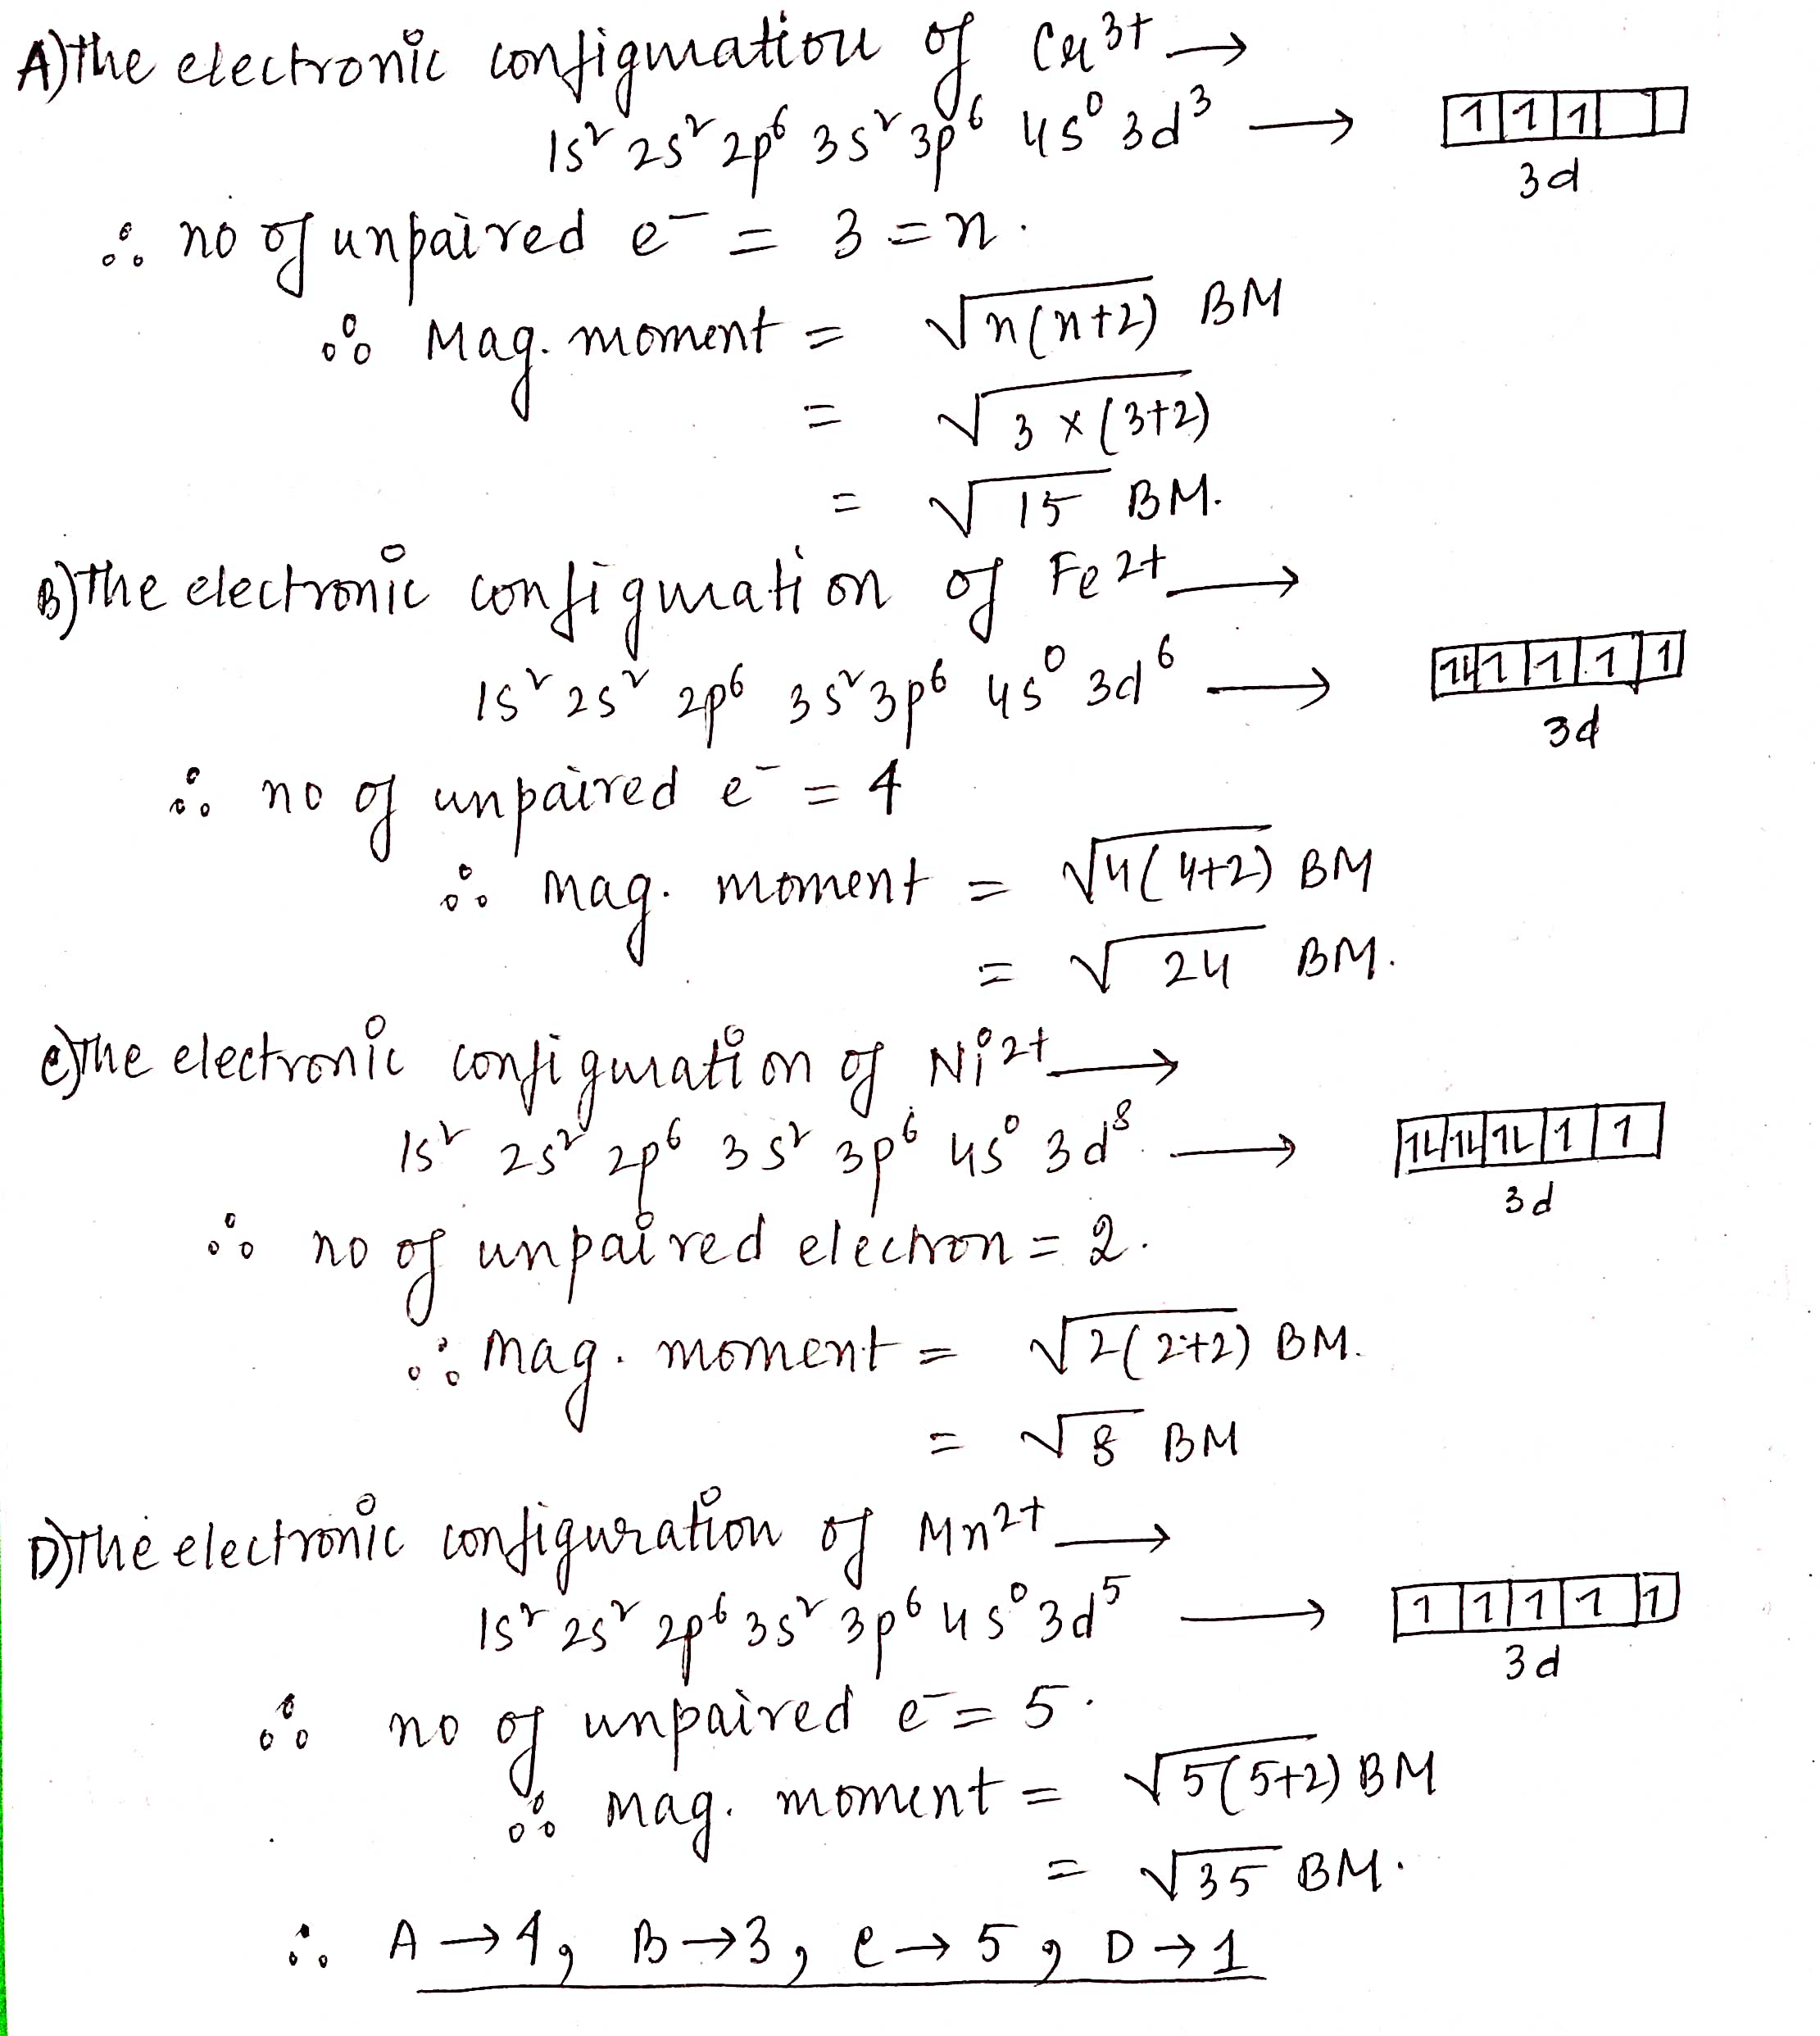 A) The electronic configuration of Cr³⁺ →
1s² 2s² 2p⁶ 3s² 3p⁶ 4s⁰ 3d³ → 1 1 1
3d
∴ no of unpaired e⁻ = 3 = n.
∴ Mag. moment = √n(n+2) BM
= √3 × (3+2)
= √15 BM.
B) The electronic configuration of Fe²⁺ →
1s² 2s² 2p⁶ 3s² 3p⁶ 4s⁰ 3d⁶ → 1L 1 1 1 1
3d
∴ no of unpaired e⁻ = 4
∴ mag. moment = √4(4+2) BM
= √24 BM.
C) The electronic configuration of Ni²⁺ →
1s² 2s² 2p⁶ 3s² 3p⁶ 4s⁰ 3d⁸ → 1L 1L 1L 1 1
3d
∴ no of unpaired electron = 2.
∴ mag. moment = √2(2+2) BM.
= √8 BM
D) The electronic configuration of Mn²⁺ →
1s² 2s² 2p⁶ 3s² 3p⁶ 4s⁰ 3d⁵ → 1 1 1 1 1
3d
∴ no of unpaired e⁻ = 5.
∴ mag. moment = √5(5+2) BM
= √35 BM.
∴ A → 4, B → 3, C → 5, D → 1